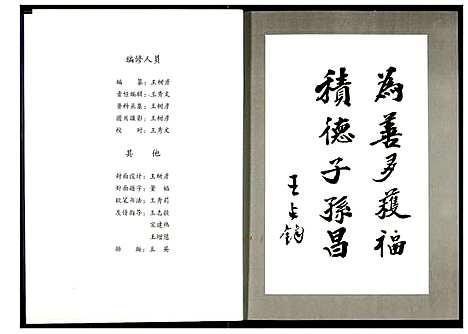 编修人员
编　纂：王树彦
责任编辑：王秀文
资料采集：王树彦
图片摄影：王树彦
校　对：王秀文
其　他
封面设计：王树彦
封面题字：董　娟
软笔书法：王秀莉
友情指导：王志毅
宋建热
王增慧
为善多获福
積德子孫昌
王占鈞